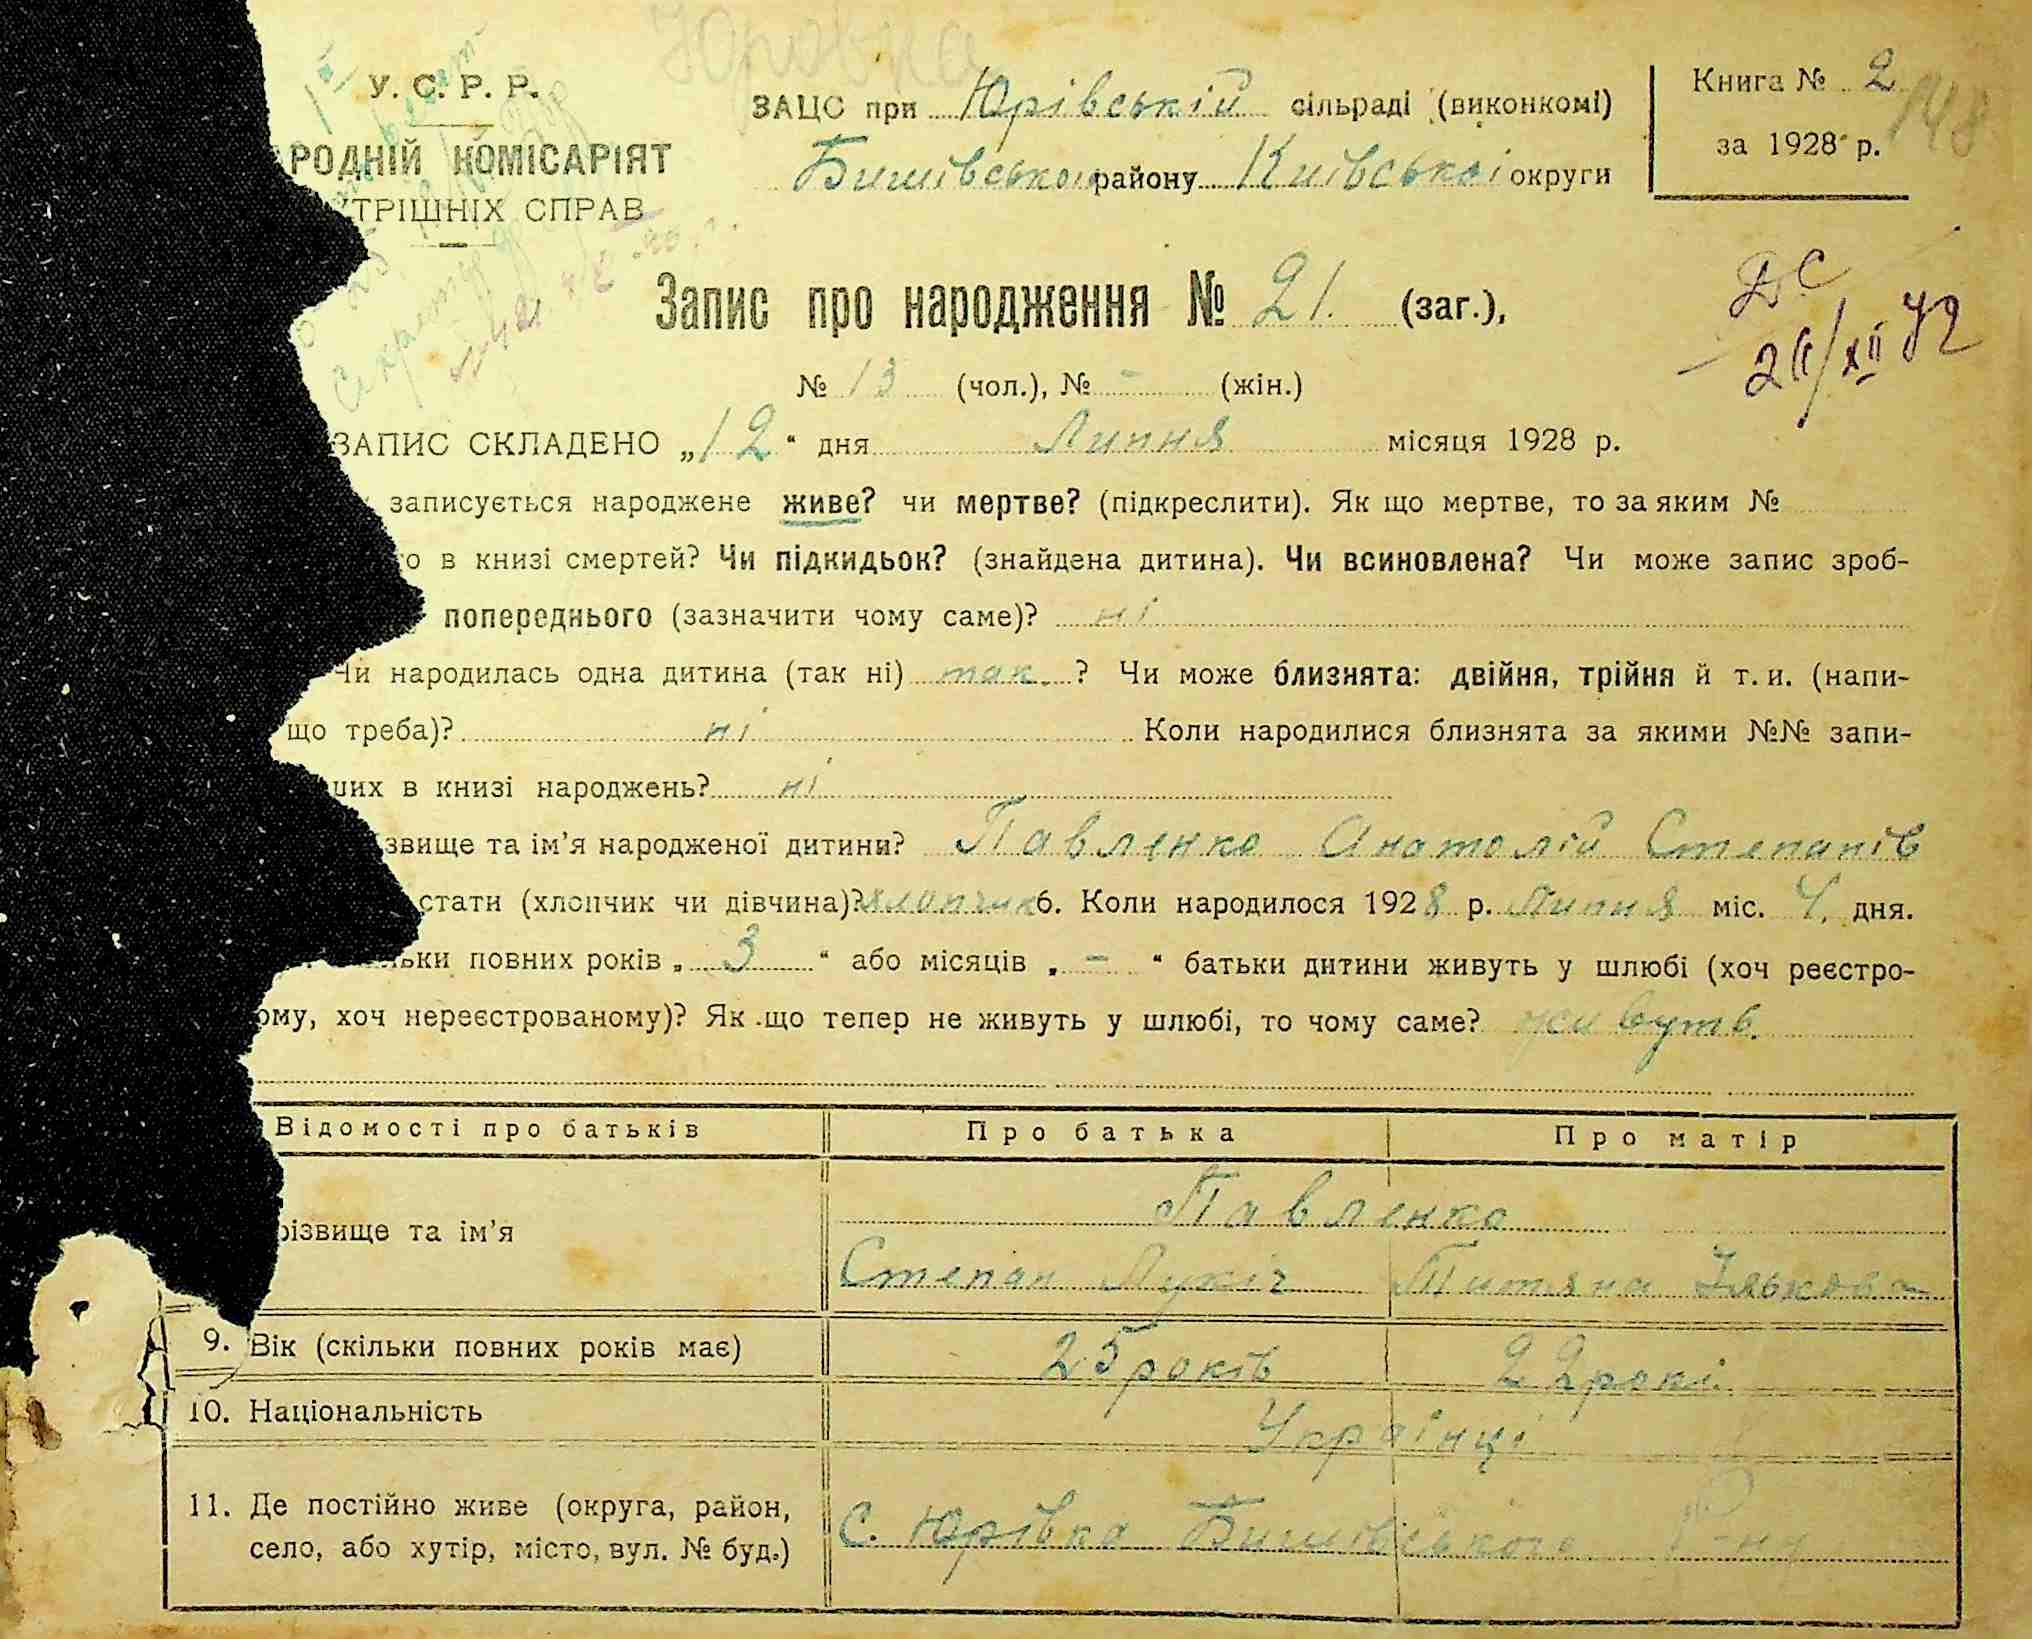 Юровка
У. С. Р. Р.
РОДНІЙ КОМІСАРІЯТ
ТРІШНІХ СПРАВ
ЗАЦС при Юрівській сільраді (виконкомі)
Бишівського району Київської округи
Книга № 2
за 1928 р.
148
Запис про народження № 21. (заг.),
№ 13 (чол.), № - (жін.)
ДС
26/XII 72
ЗАПИС СКЛАДЕНО „12“ дня Липня місяця 1928 р.
записується народжене живе? чи мертве? (підкреслити). Як що мертве, то за яким №
о в книзі смертей? Чи підкидьок? (знайдена дитина). Чи всиновлена? Чи може запис зроб-
попереднього (зазначити чому саме)? ні
Чи народилась одна дитина (так ні) так. ? Чи може близнята: двійня, трійня й т. и. (напи-
що треба)? ні Коли народилися близнята за якими №№ запи-
ших в книзі народжень? ні
звище та ім’я народженої дитини? Павленко Анатолій Степанів
стати (хлопчик чи дівчина)? хлопчик 6. Коли народилося 1928 р. Липня міс. 4. дня.
ьки повних років „ 3 “ або місяців „ - “ батьки дитини живуть у шлюбі (хоч реєстро-
ому, хоч нереєстрованому)? Як що тепер не живуть у шлюбі, то чому саме? живуть.
Відомості про батьків Про батька Про матір
Павленко
різвище та ім’я
Степан Лукіч Титяна Ількова
9. Вік (скільки повних років має) 25 років 22 рокі.
10. Національність Українці
11. Де постійно живе (округа, район,
село, або хутір, місто, вул. № буд.) С. Юрівка Бишівського Р-ну